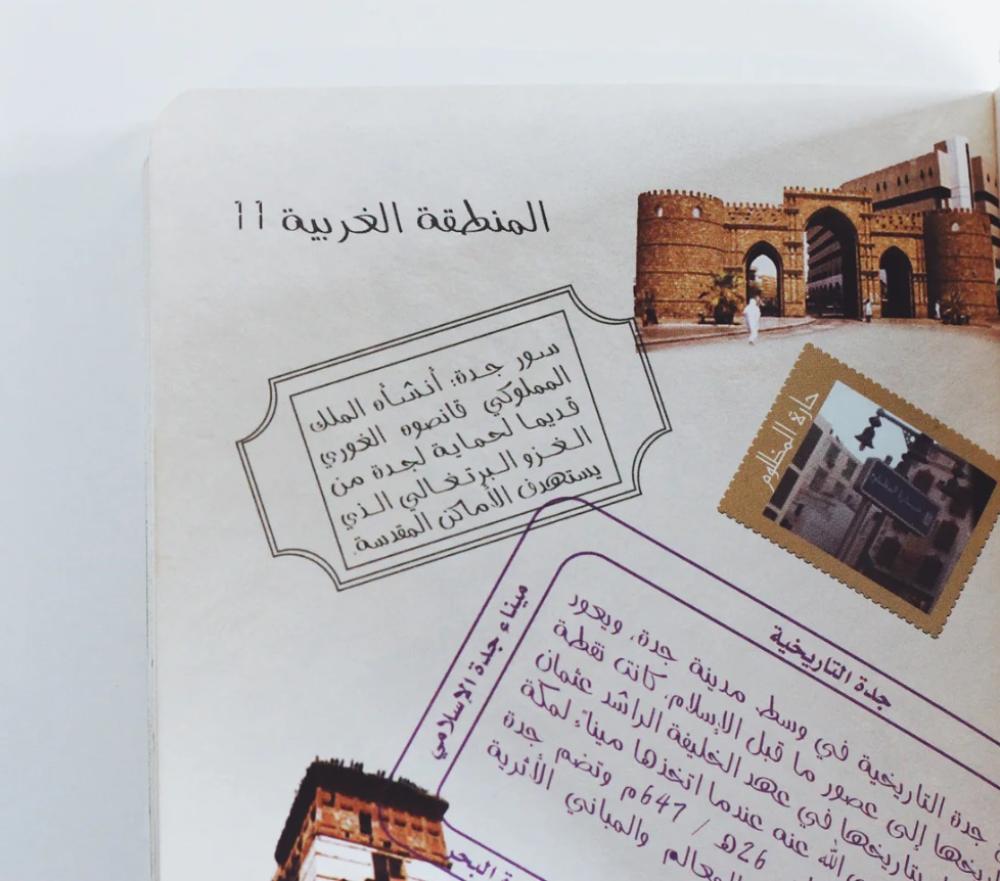 المنطقة الغربية 11
سور جدة: أنشأه الملك
المملوكي قانصوه الغوري
قديما لحماية لجدة من
الغزو البرتغالي الذي
يستهدف الأماكن المقدسة.
حارة المظلوم
جدة التاريخية
ميناء جدة الإسلامي
جدة التاريخية في وسط مدينة جدة، ويعود
تاريخها إلى عصور ما قبل الإسلام، كانت نقطة
بتاريخها في عهد الخليفة الراشد عثمان
الله عنه عندما اتخذها ميناءً لمكة
26هـ / 647م وتضم جدة
المعالم والمباني الأثرية